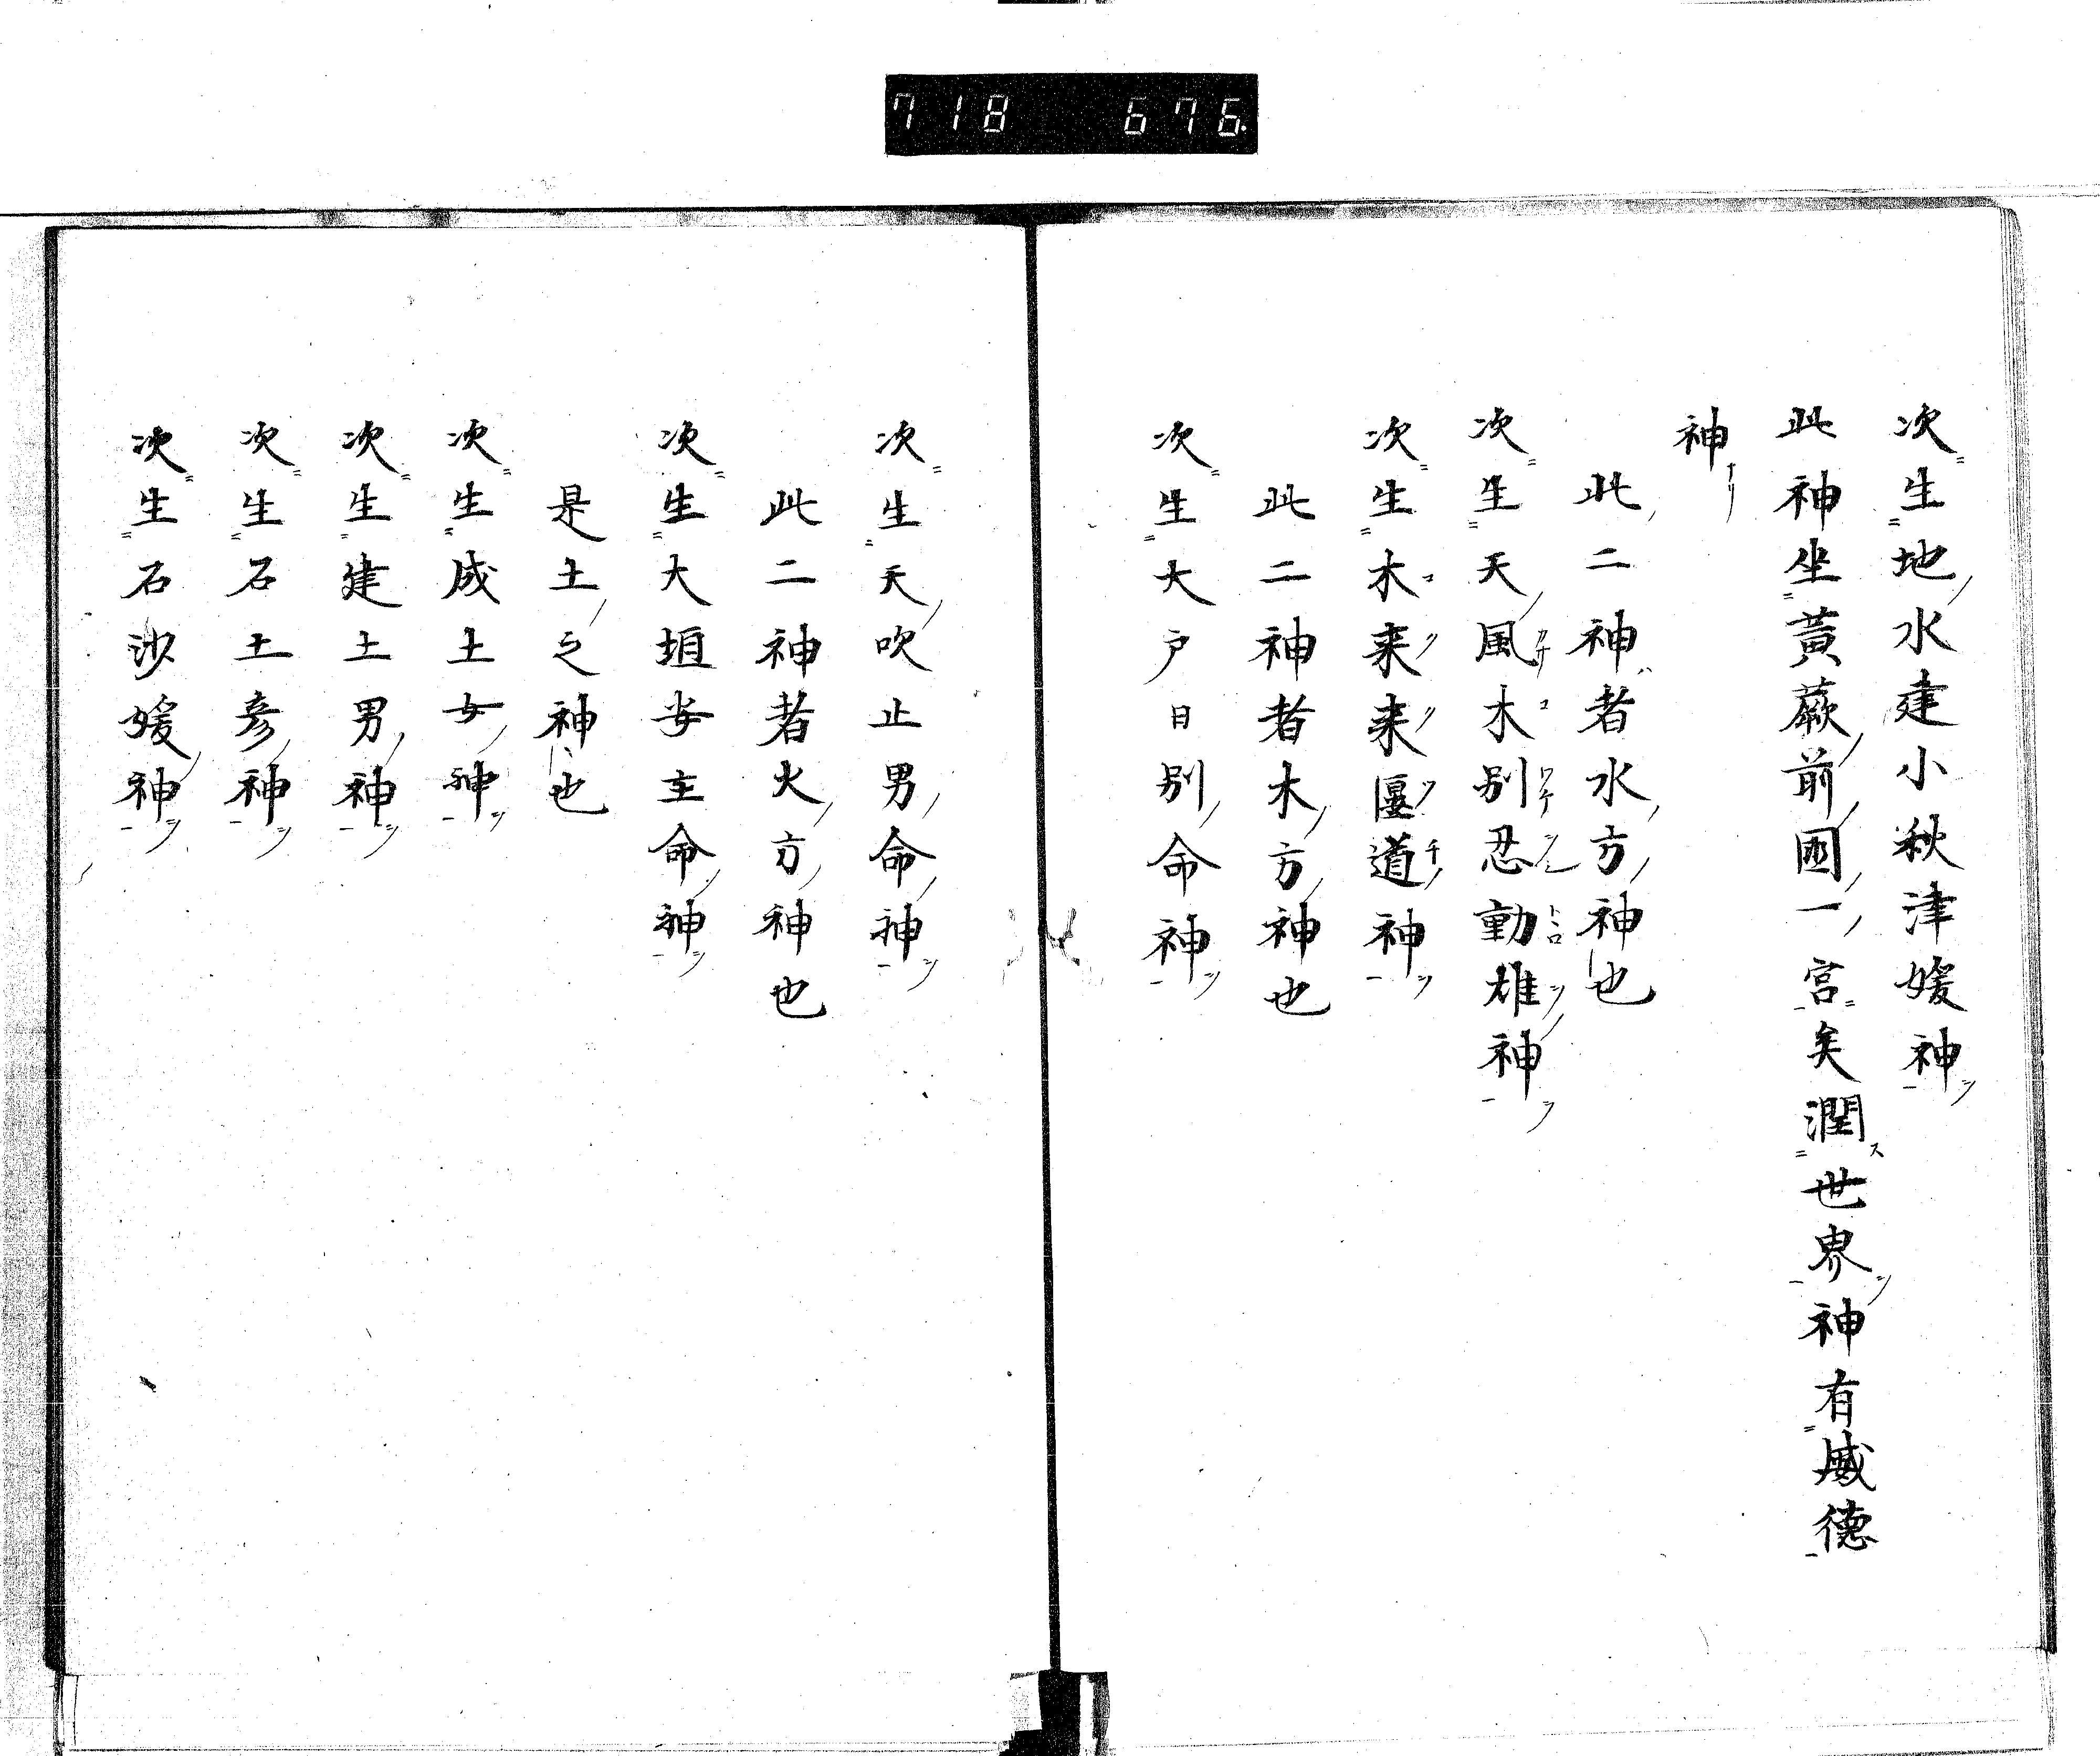 718 676.
次生地水建小秋津媛神
此神坐黃蕨前國一宮矣潤世界神有威德
神
此二神者水方神也
次生天風木別忍動雄神
次生木来来匽道神
此二神者木方神也
次生大戸日別命神
次生天吹止男命神
此二神者火方神也
次生大垣安主命神
是土之神也
次生成土女神
次生建土男神
次生石土彦神
次生石沙媛神